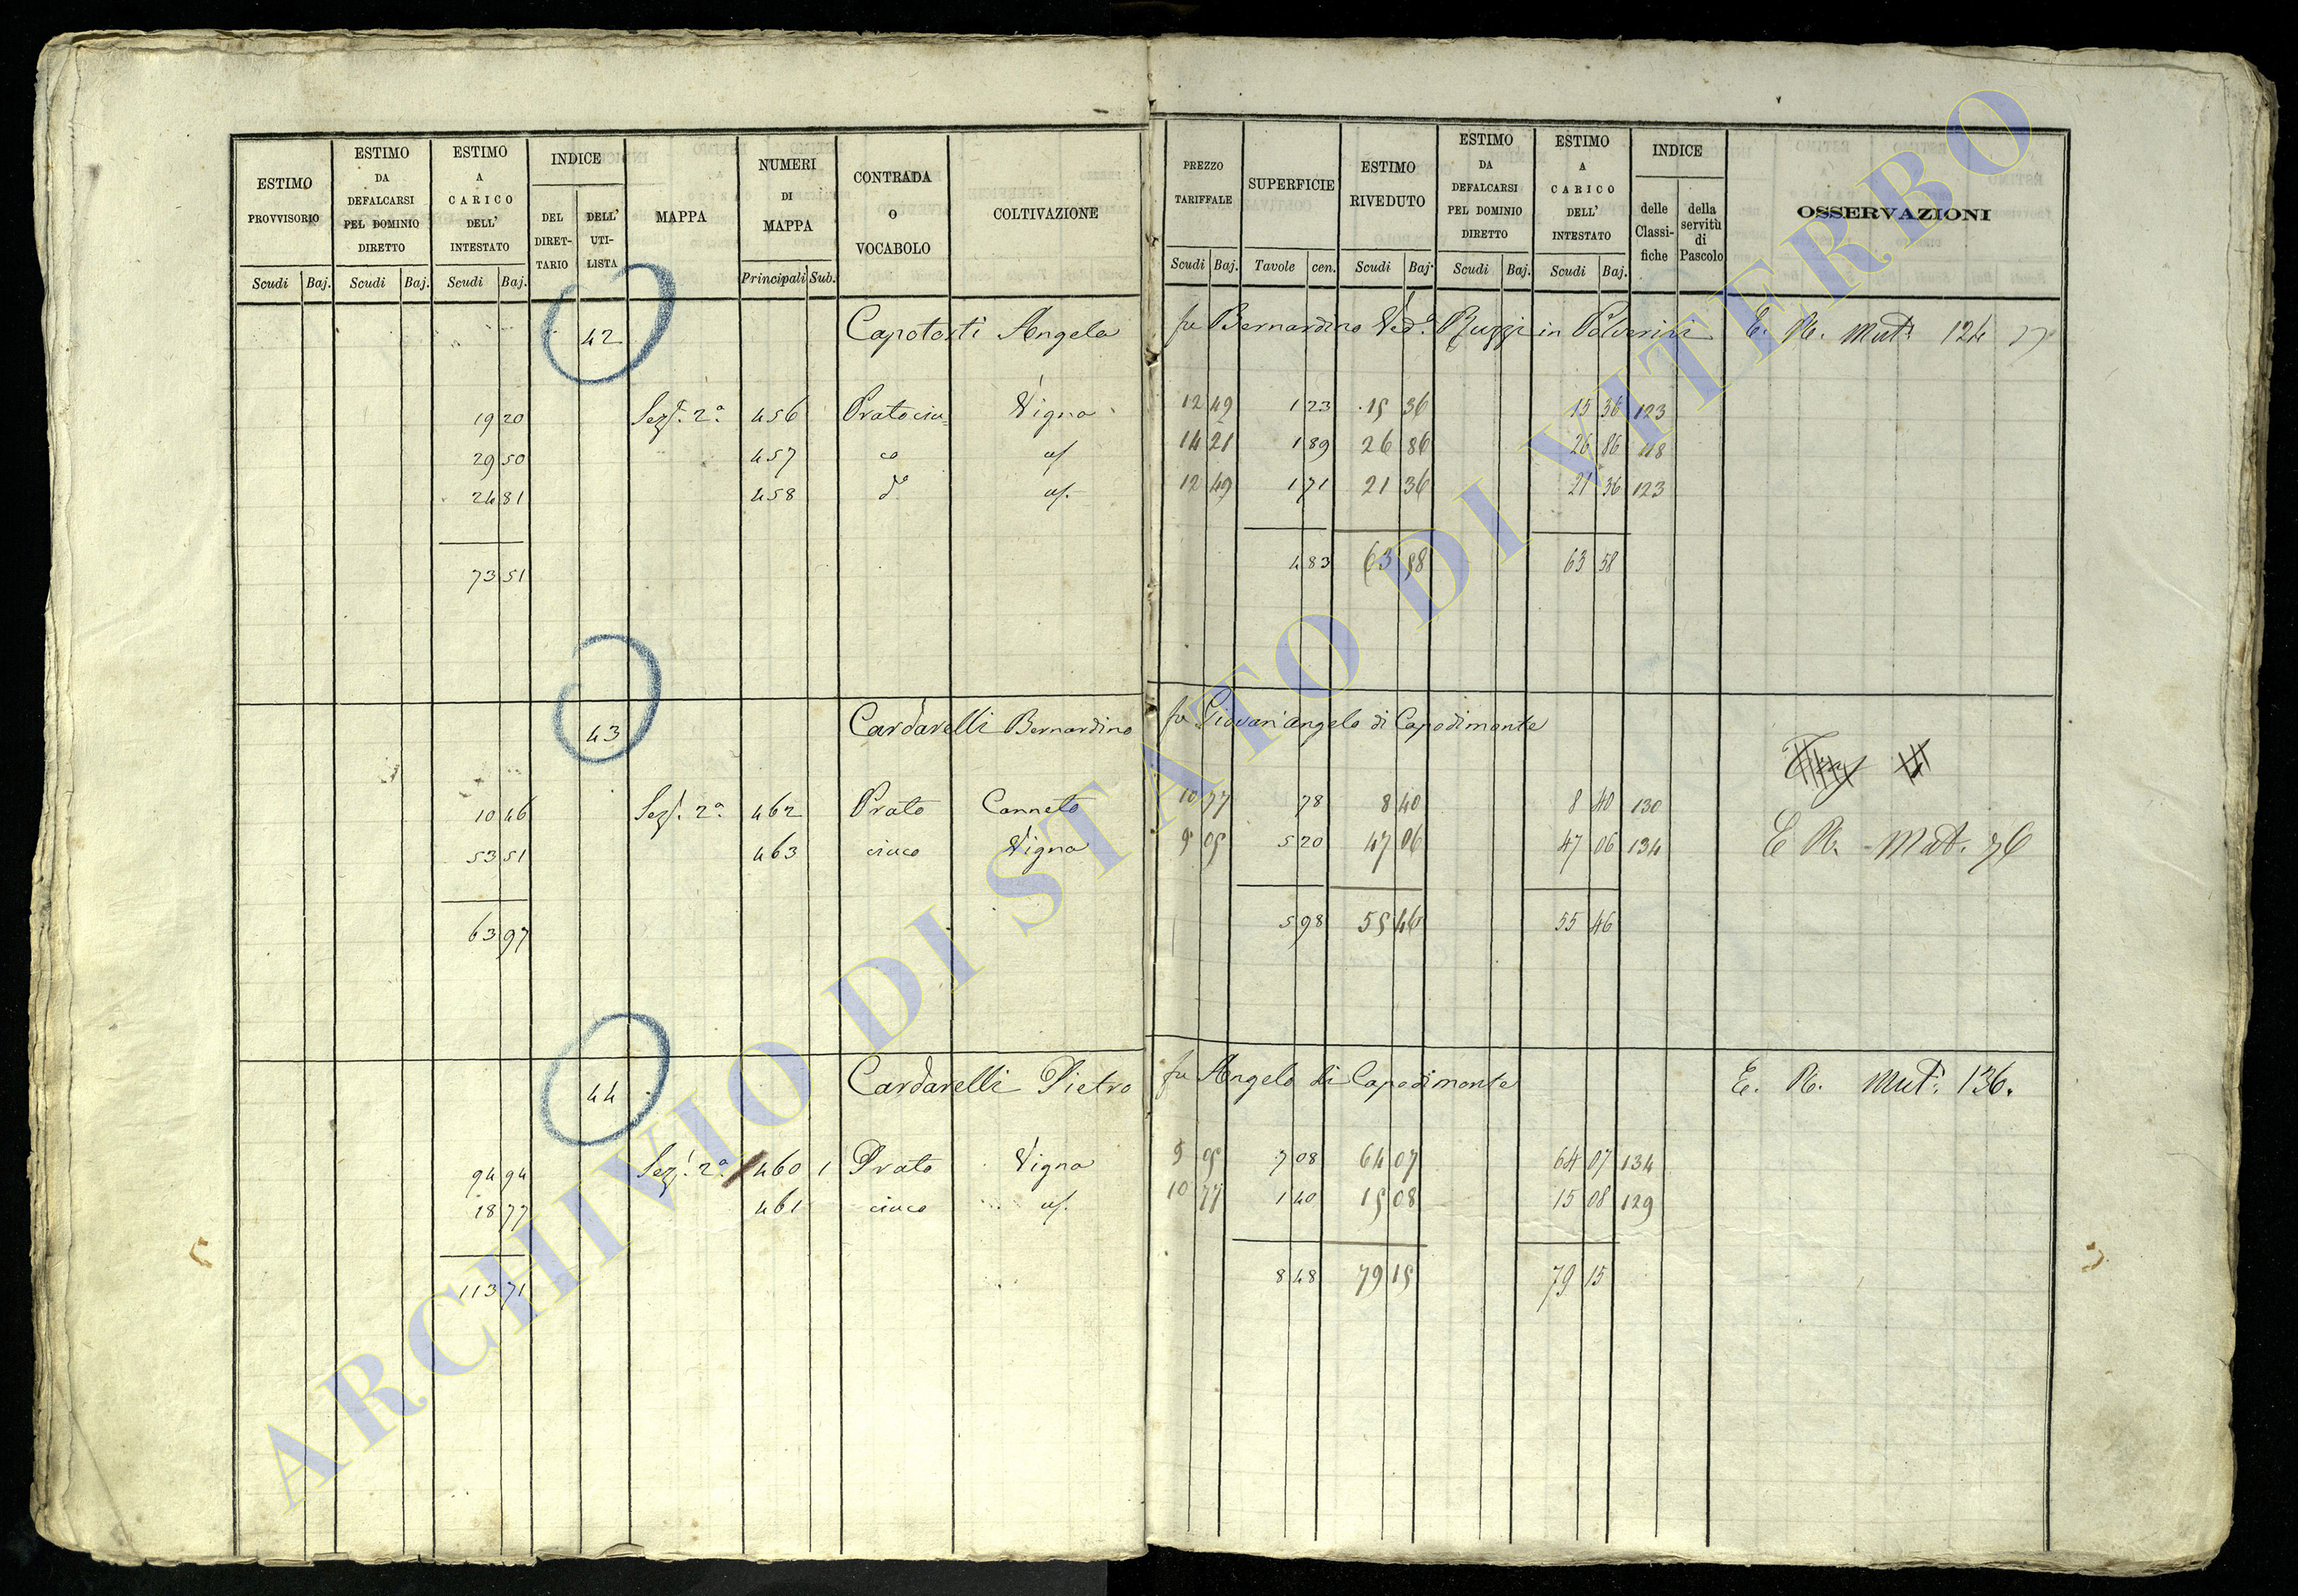 ESTIMO PROVVISORIO Scudi Baj.
ESTIMO DA DEFALCARSI PEL DOMINIO DIRETTO Scudi Baj.
ESTIMO A CARICO DELL' INTESTATO Scudi Baj.
INDICE DEL DIRET- TARIO DELL' UTI- LISTA
MAPPA
NUMERI DI MAPPA Principali Sub.
CONTRADA O VOCABOLO
COLTIVAZIONE
PREZZO TARIFFALE Scudi Baj.
SUPERFICIE Tavole cen.
ESTIMO RIVEDUTO Scudi Baj.
ESTIMO DA DEFALCARSI PEL DOMINIO DIRETTO Scudi Baj.
ESTIMO A CARICO DELL' INTESTATO Scudi Baj.
INDICE delle Classi- fiche della servitù di Pascolo
OSSERVAZIONI
42 Capotosti Angela fu Bernardino Ved.a Ruzzi in Polverini E. R. Mut. 124
19 20 Sez. 2a 456 Pratocin= Vigna 12 49 1 23 15 36 15 36 123
29 50 457 co 14 21 1 89 26 86 26 86 118
24 81 458 do 12 49 1 71 21 36 21 36 123
73 51 4 83 63 58 63 58
43 Cardarelli Bernardino fu Giovan'angelo di Capodimonte
10 46 Sez. 2a 462 Prato Canneto 10 77 78 8 40 8 40 130
53 51 463 cinco Vigna 9 05 5 20 47 06 47 06 134 E R. Mut. 76
63 97 5 98 55 46 55 46
44 Cardarelli Pietro fu Angelo di Capodimonte E. R. Mut. 136.
94 94 Sez. 2a 460 1 Prato Vigna 9 05 7 08 64 07 64 07 134
18 77 461 cinco 10 77 1 40 15 08 15 08 129
113 71 8 48 79 15 79 15
ARCHIVIO DI STATO DI VITERBO